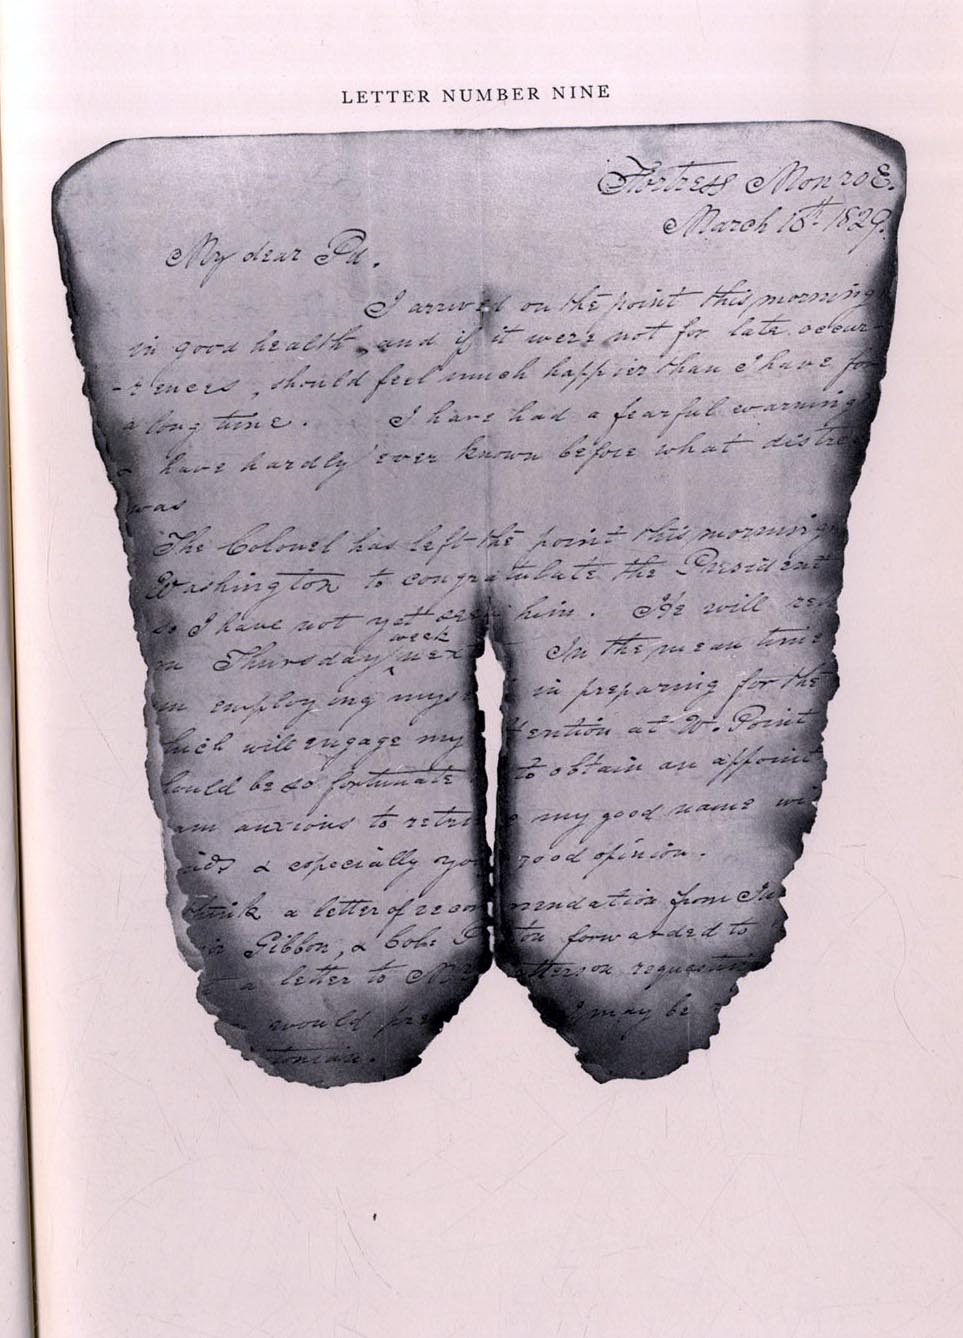 LETTER NUMBER NINE
Fortress Monroe.
March 10th 1829.
My dear Pa.
I arrived on the point this morning
in good health, and if it were not for late occur-
-rences, should feel much happier than I have fo
a long time. I have had a fearful warning
& have hardly ever known before what distre
was
The Colonel has left the point this morning
Washington to congratulate the President
so I have not yet seen him. He will re
on Thursday week nex In the mean time
m employing mys in preparing for the
hich will engage my ttention at W. Point
hould be so fortunate to obtain an appoint
am anxious to retri e my good name wi
nds & especially you good opinion.
think a letter of recom mendation from Ju
Gibbon, & Colo: P ton forwarded to
a letter to M tterson requesti
would pre I may be
tonian.